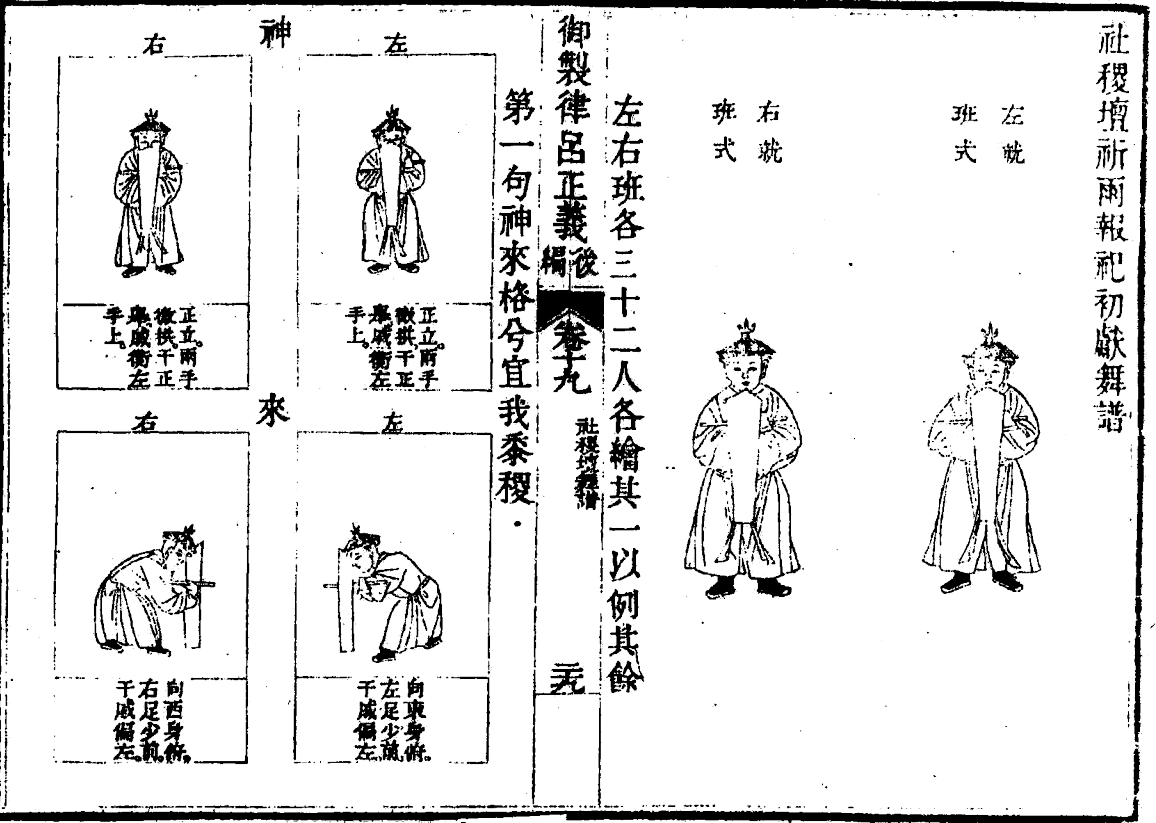 社稷壇祈雨報祀初獻舞譜
左就
班式
右就
班式
左右班各三十二人各繪其一以例其餘
御製律呂正義後編
卷十九
社稷壇舞譜
第一句神來格兮宜我黍稷
神
左
正立兩手
微拱干正
舉戚衡左
手上
右
正立兩手
微拱干正
舉戚衡左
手上
來
左
向東身俯
左足少前
干戚偏左
右
向西身俯
右足少前
干戚偏左